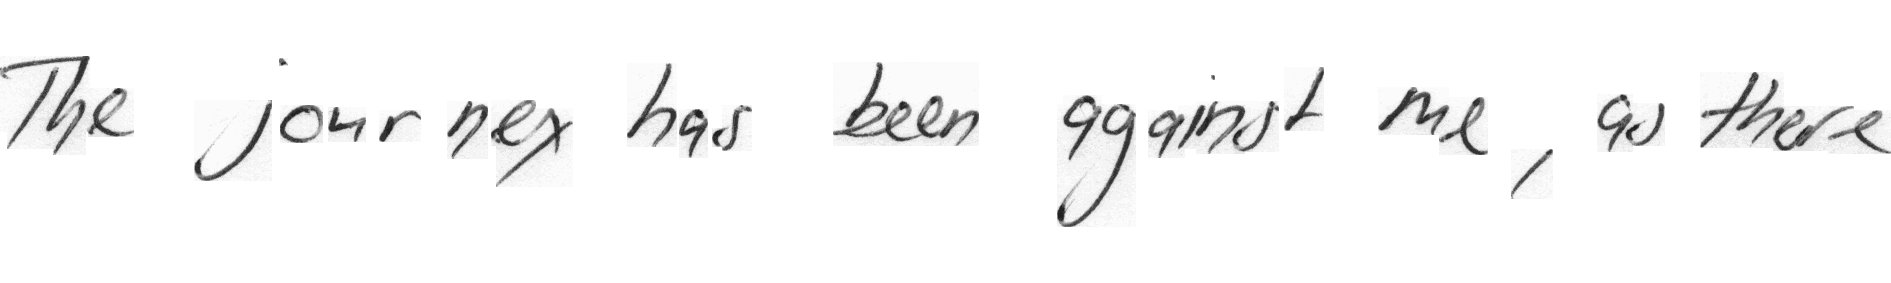 The journey has been against me, as there